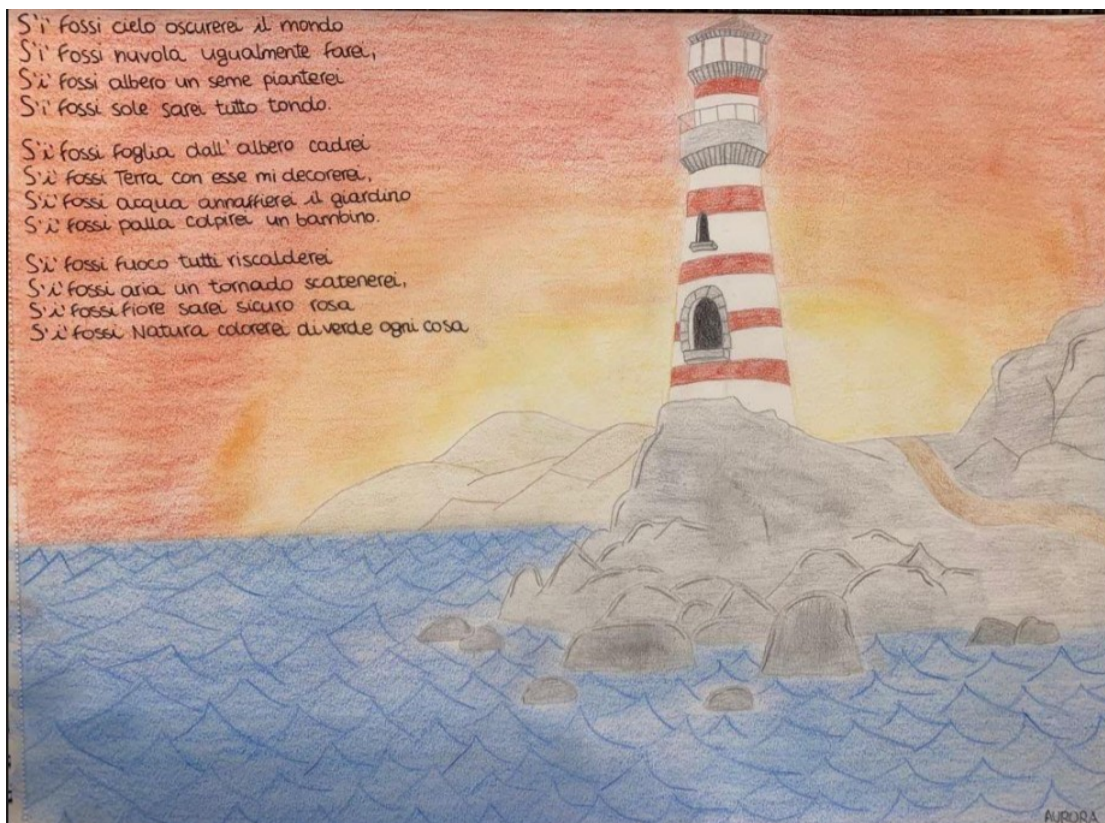 S'i' fossi cielo oscurerei il mondo
S'i' fossi nuvola ugualmente farei,
S'i' fossi albero un seme pianterei
S'i' fossi sole sarei tutto tondo.
S'i' fossi foglia dall'albero cadrei
S'i' fossi Terra con esse mi decorerei,
S'i' fossi acqua annaffierei il giardino
S'i' fossi palla colpirei un bambino.
S'i' fossi fuoco tutti riscalderei
S'i' fossi aria un tornado scatenerei,
S'i' fossi fiore sarei sicuro rosa
S'i' fossi Natura colorerei di verde ogni cosa
AURORA